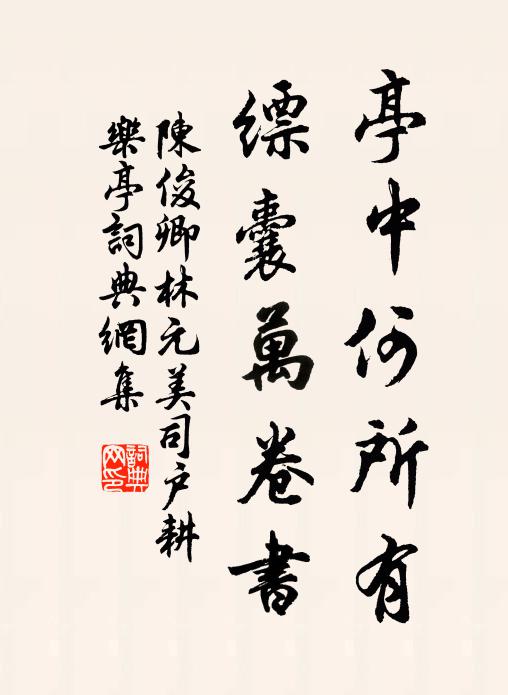 亭中何所有
缥囊萬卷書
陳俊卿林元美司户耕
樂亭詞典網集
詞典网印